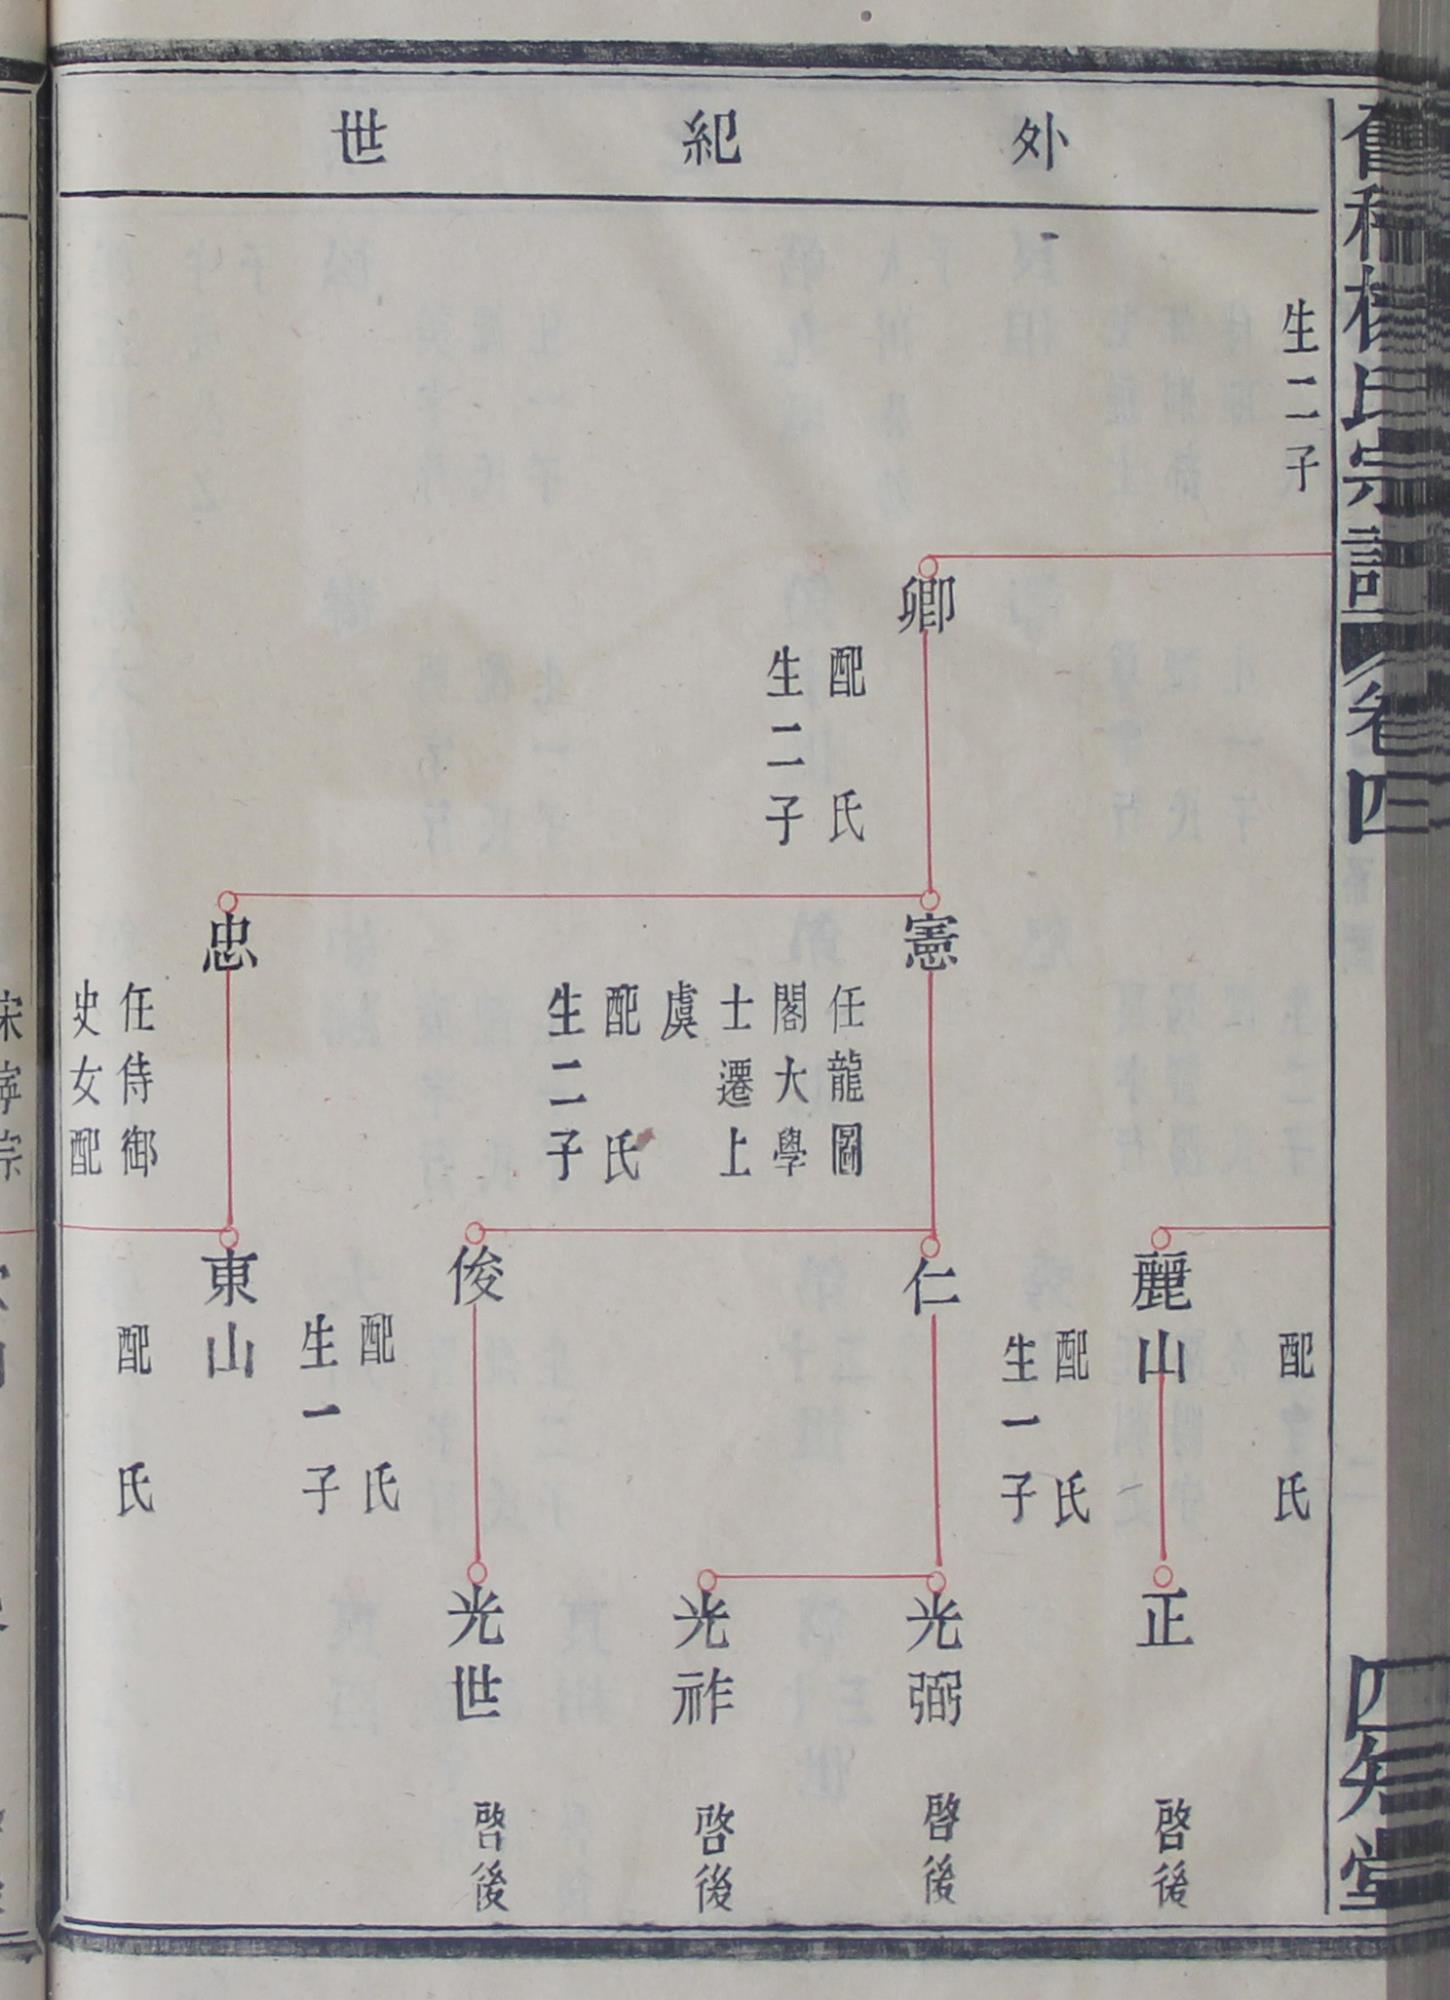 外紀世
楊氏宗譜
卷四
四知堂
生二子
卿
配氏
生二子
憲
任龍圖
閣大學
士遷上
虞
配氏
生二子
忠
任侍御
史女配
宋寧宗
配氏
麗山
配氏
生一子
仁
俊
配氏
生一子
東山
配氏
正
啓後
光弼
啓後
光祚
啓後
光世
啓後